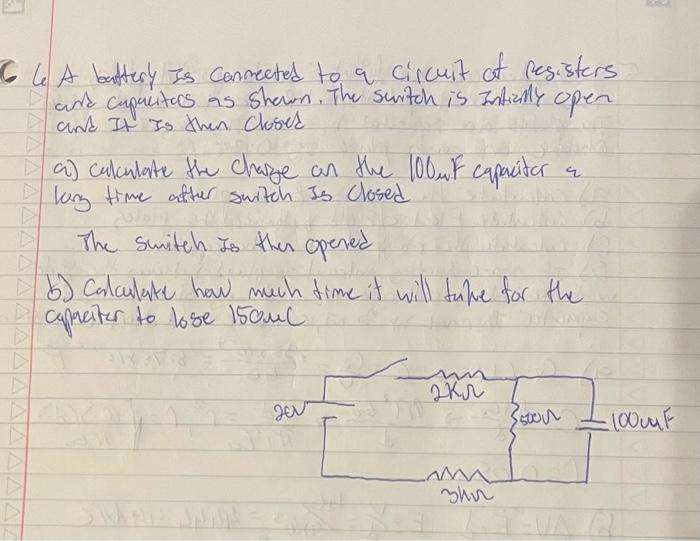 6 A battery Is Connected to a circuit of resisters
and capacitors as Shown. The switch is Initially open
and It Is then Closed
a) Calculate the Charge on the 100uF capacitor a
long time after switch Is Closed
The switch Is then opened
b) Calculate how much time it will take for the
capaciter to lose 150uC
2KΩ
20V
500Ω
100uF
3kΩ